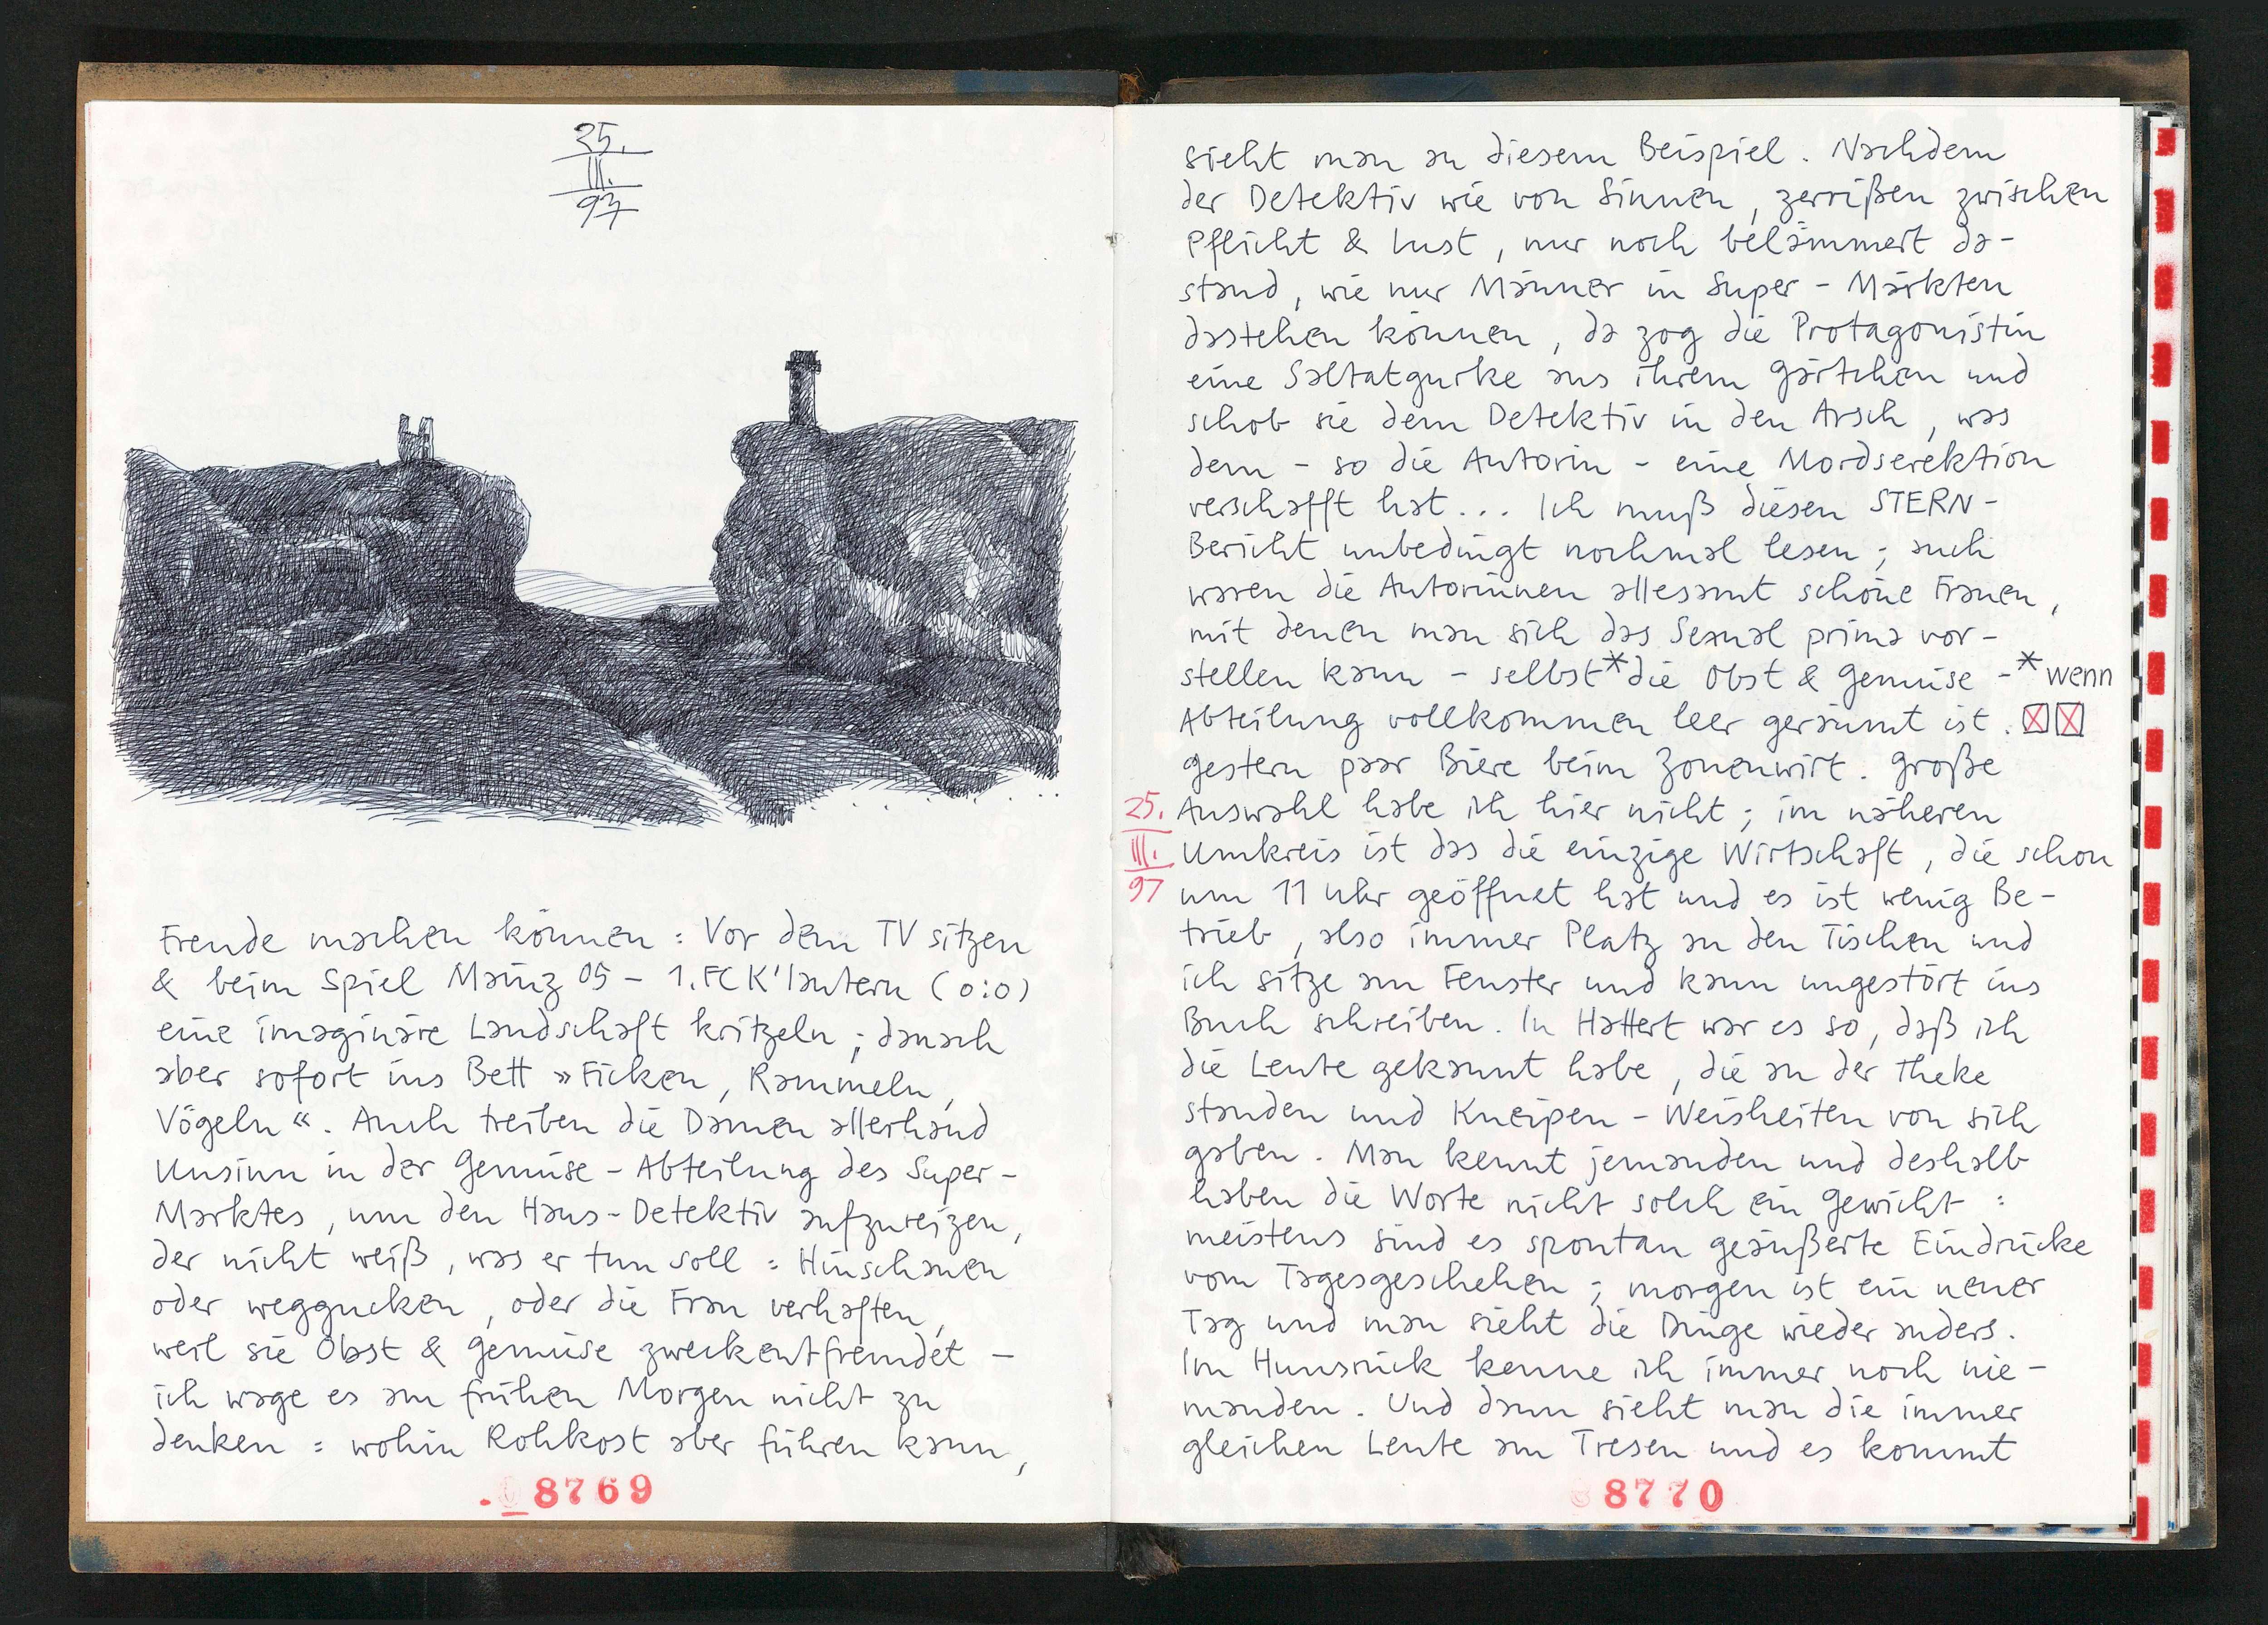 25.
III.
97
Freude machen können : Vor dem TV sitzen
& beim Spiel Mainz 05 – 1.FC K'lautern (0:0)
eine imaginäre Landschaft kritzeln ; danach
aber sofort ins Bett »Ficken, Rammeln,
Vögeln«. Auch treiben die Damen allerhand
Unsinn in der Gemüse-Abteilung des Super-
Marktes, um den Haus-Detektiv aufzureizen,
der nicht weiß, was er tun soll : Hinschauen
oder weggucken, oder die Frau verhaften,
weil sie Obst & Gemüse zweckentfremdet –
ich wage es am frühen Morgen nicht zu
denken : wohin Rohkost aber führen kann,
8769
sieht man an diesem Beispiel. Nachdem
der Detektiv wie von Sinnen, zerrißen zwischen
Pflicht & Lust, nur noch belämmert da-
stand, wie nur Männer in Super-Märkten
dastehen können, da zog die Protagonistin
eine Saltatgurke aus ihrem Gärtchen und
schob sie dem Detektiv in den Arsch, was
dem – so die Autorin – eine Mordserektion
verschafft hat... Ich muß diesen STERN-
Bericht unbedingt nochmal lesen ; auch
waren die Autorinnen allesamt schöne Frauen,
mit denen man sich das Sexual prima vor-
stellen kann – selbst * die Obst & Gemüse - * wenn
Abteilung vollkommen leer geräumt ist.
gestern paar Biere beim Zonenwirt. Große
25. Auswahl habe ich hier nicht ; im näheren
III. Umkreis ist das die einzige Wirtschaft, die schon
97 um 11 Uhr geöffnet hat und es ist wenig Be-
trieb, also immer Platz an den Tischen und
ich sitze am Fenster und kann ungestört ins
Buch schreiben. In Hattert war es so, daß ich
die Leute gekannt habe, die an der Theke
standen und Kneipen-Weisheiten von sich
gaben. Man kennt jemanden und deshalb
haben die Worte nicht solch ein Gewicht :
meistens sind es spontan geäußerte Eindrücke
vom Tagesgeschehen ; morgen ist ein neuer
Tag und man sieht die Dinge wieder anders.
Im Hunsrück kenne ich immer noch nie-
manden. Und dann sieht man die immer
gleichen Leute am Tresen und es kommt
8770